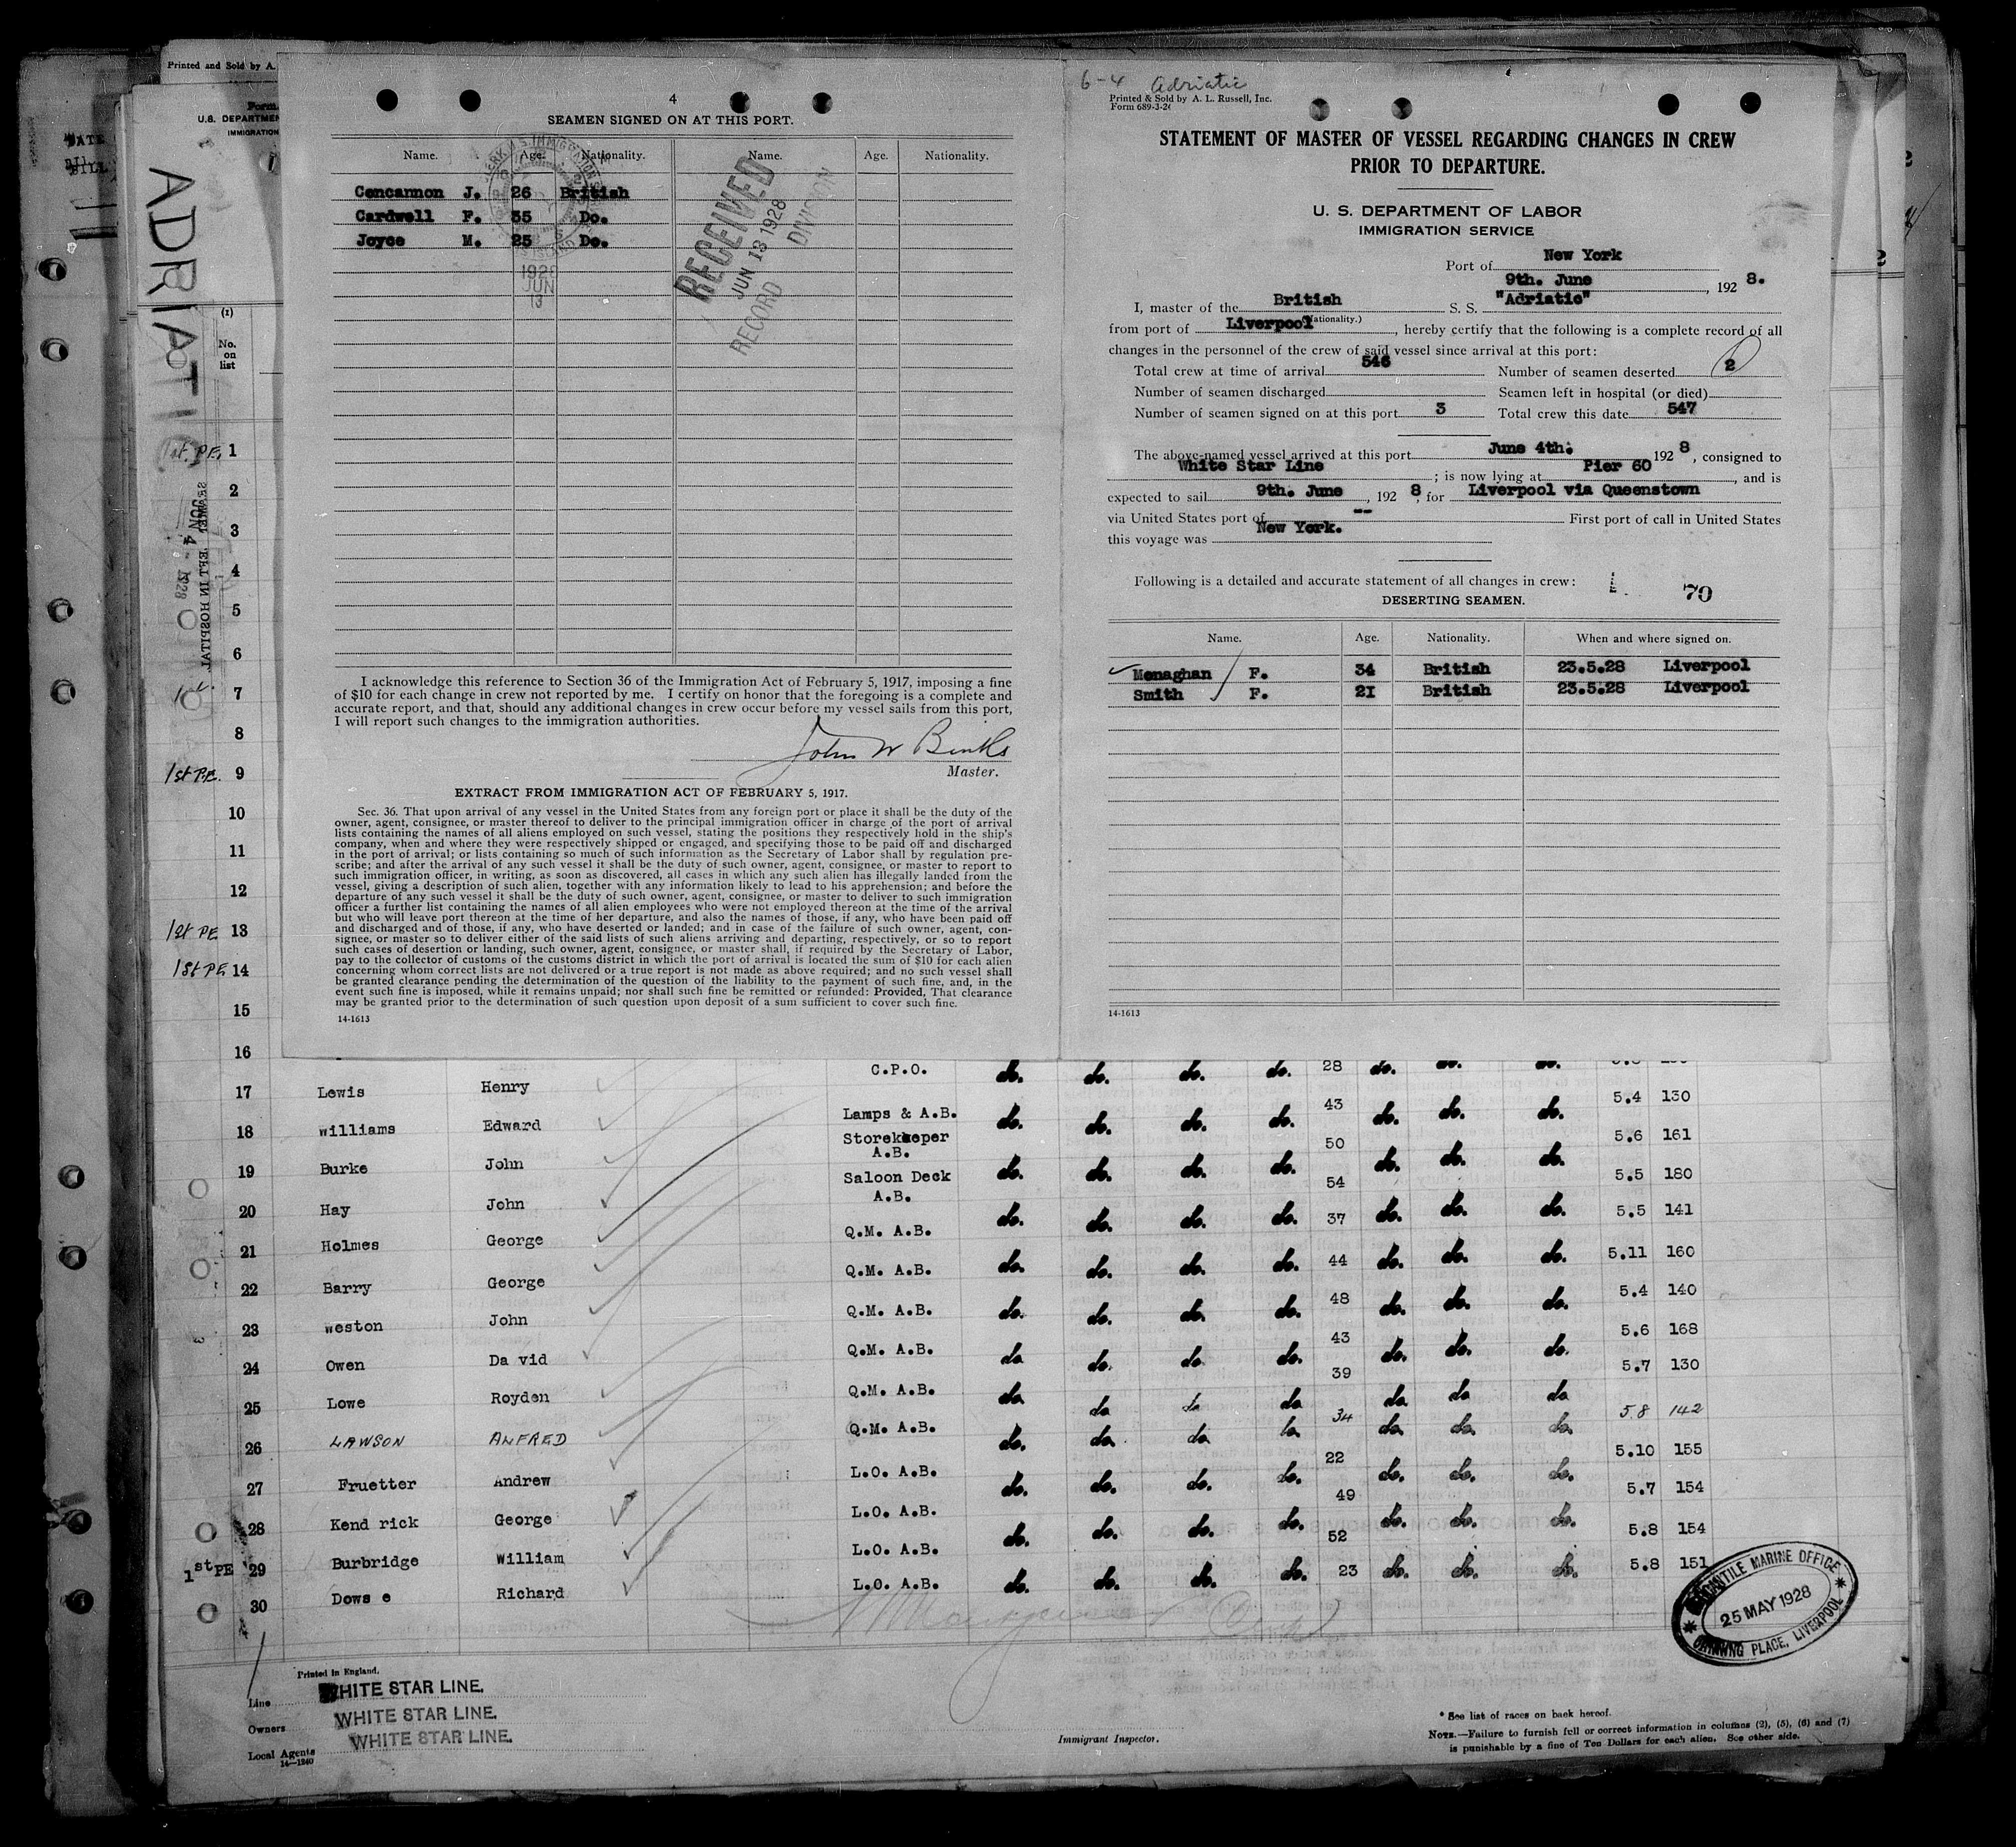 Printed and Sold by A.
Form
U.S. DEPARTMEN
IMMIGRATION
ADRIATIC
(1)
No.
on
list
4
SEAMEN SIGNED ON AT THIS PORT.
Name. Age. Nationality. Name. Age. Nationality.
Concannon J. 26 British
Cardwell F. 35 Do.
Joyce M. 25 Do.
1928
JUN
13
RECEIVED
JUN 13 1928
RECORD DIVISION
I acknowledge this reference to Section 36 of the Immigration Act of February 5, 1917, imposing a fine
of $10 for each change in crew not reported by me. I certify on honor that the foregoing is a complete and
accurate report, and that, should any additional changes in crew occur before my vessel sails from this port,
I will report such changes to the immigration authorities.
John W Binks
Master.
EXTRACT FROM IMMIGRATION ACT OF FEBRUARY 5, 1917.
Sec. 36. That upon arrival of any vessel in the United States from any foreign port or place it shall be the duty of the
owner, agent, consignee, or master thereof to deliver to the principal immigration officer in charge of the port of arrival
lists containing the names of all aliens employed on such vessel, stating the positions they respectively hold in the ship's
company, when and where they were respectively shipped or engaged, and specifying those to be paid off and discharged
in the port of arrival; or lists containing so much of such information as the Secretary of Labor shall by regulation pre-
scribe; and after the arrival of any such vessel it shall be the duty of such owner, agent, consignee, or master to report to
such immigration officer, in writing, as soon as discovered, all cases in which any such alien has illegally landed from the
vessel, giving a description of such alien, together with any information likely to lead to his apprehension; and before the
departure of any such vessel it shall be the duty of such owner, agent, consignee, or master to deliver to such immigration
officer a further list containing the names of all alien employees who were not employed thereon at the time of the arrival
but who will leave port thereon at the time of her departure, and also the names of those, if any, who have been paid off
and discharged and of those, if any, who have deserted or landed; and in case of the failure of such owner, agent, con-
signee, or master so to deliver either of the said lists of such aliens arriving and departing, respectively, or so to report
such cases of desertion or landing, such owner, agent, consignee, or master shall, if required by the Secretary of Labor,
pay to the collector of customs of the customs district in which the port of arrival is located the sum of $10 for each alien
concerning whom correct lists are not delivered or a true report is not made as above required; and no such vessel shall
be granted clearance pending the determination of the question of the liability to the payment of such fine, and, in the
event such fine is imposed, while it remains unpaid; nor shall such fine be remitted or refunded: Provided, That clearance
may be granted prior to the determination of such question upon deposit of a sum sufficient to cover such fine.
14-1613
6-4 Adriatic
Printed & Sold by A. L. Russell, Inc.
Form 689-3-26
STATEMENT OF MASTER OF VESSEL REGARDING CHANGES IN CREW
PRIOR TO DEPARTURE.
U. S. DEPARTMENT OF LABOR
IMMIGRATION SERVICE
Port of New York
9th. June, 1928.
I, master of the British S. S. "Adriatic"
(Nationality.)
from port of Liverpool, hereby certify that the following is a complete record of all
changes in the personnel of the crew of said vessel since arrival at this port:
Total crew at time of arrival 546 Number of seamen deserted 2
Number of seamen discharged Seamen left in hospital (or died)
Number of seamen signed on at this port 3 Total crew this date 547
The above-named vessel arrived at this port June 4th. 1928, consigned to
White Star Line; is now lying at Pier 60, and is
expected to sail 9th. June, 1928, for Liverpool via Queenstown
via United States port of -- First port of call in United States
this voyage was New York.
Following is a detailed and accurate statement of all changes in crew:
70
DESERTING SEAMEN.
Name. Age. Nationality. When and where signed on.
Monaghan F. 34 British 23.5.28 Liverpool
Smith F. 21 British 23.5.28 Liverpool
14-1613
1st. P.E. 1
2
3
4
5
6
7
8
1st P.E. 9
10
11
12
1st PE 13
1st PE 14
15
16
SEAMEN LEFT IN HOSPITAL
JUN 4 - 1928
C.P.O. do. do. do. do. 28 do. do. do.
17 Lewis Henry Lamps & A.B. do. do. do. do. 43 do. do. do. 5.4 130
18 Williams Edward Storekeeper A.B. do. do. do. do. 50 do. do. do. 5.6 161
19 Burke John Saloon Deck A.B. do. do. do. do. 54 do. do. do. 5.5 180
20 Hay John Q.M. A.B. do. do. do. do. 37 do. do. do. 5.5 141
21 Holmes George Q.M. A.B. do. do. do. do. 44 do. do. do. 5.11 160
22 Barry George Q.M. A.B. do. do. do. do. 48 do. do. do. 5.4 140
23 Weston John Q.M. A.B. do. do. do. do. 43 do. do. do. 5.6 168
24 Owen Da vid Q.M. A.B. do. do. do. do. 39 do. do. do. 5.7 130
25 Lowe Royden Q.M. A.B. do. do. do. do. 34 do. do. do. 5 8 142
26 LAWSON ALFRED L.O. A.B. do. do. do. do. 22 do. do. do. 5.10 155
27 Fruetter Andrew L.O. A.B. do. do. do. do. 49 do. do. do. 5.7 154
28 Kend rick George L.O. A.B. do. do. do. do. 52 do. do. do. 5.8 154
1st PE 29 Burbridge William L.O. A.B. do. do. do. do. 23 do. do. do. 5.8 151
30 Dows e Richard
MERCANTILE MARINE OFFICE
25 MAY 1928
PLACE, LIVERPOOL
Printed in England.
Line WHITE STAR LINE.
Owners WHITE STAR LINE.
Local Agents WHITE STAR LINE.
14—1240
Immigrant Inspector.
* See list of races on back hereof.
NOTE.—Failure to furnish full or correct information in columns (2), (5), (6) and (7)
is punishable by a fine of Ten Dollars for each alien. See other side.